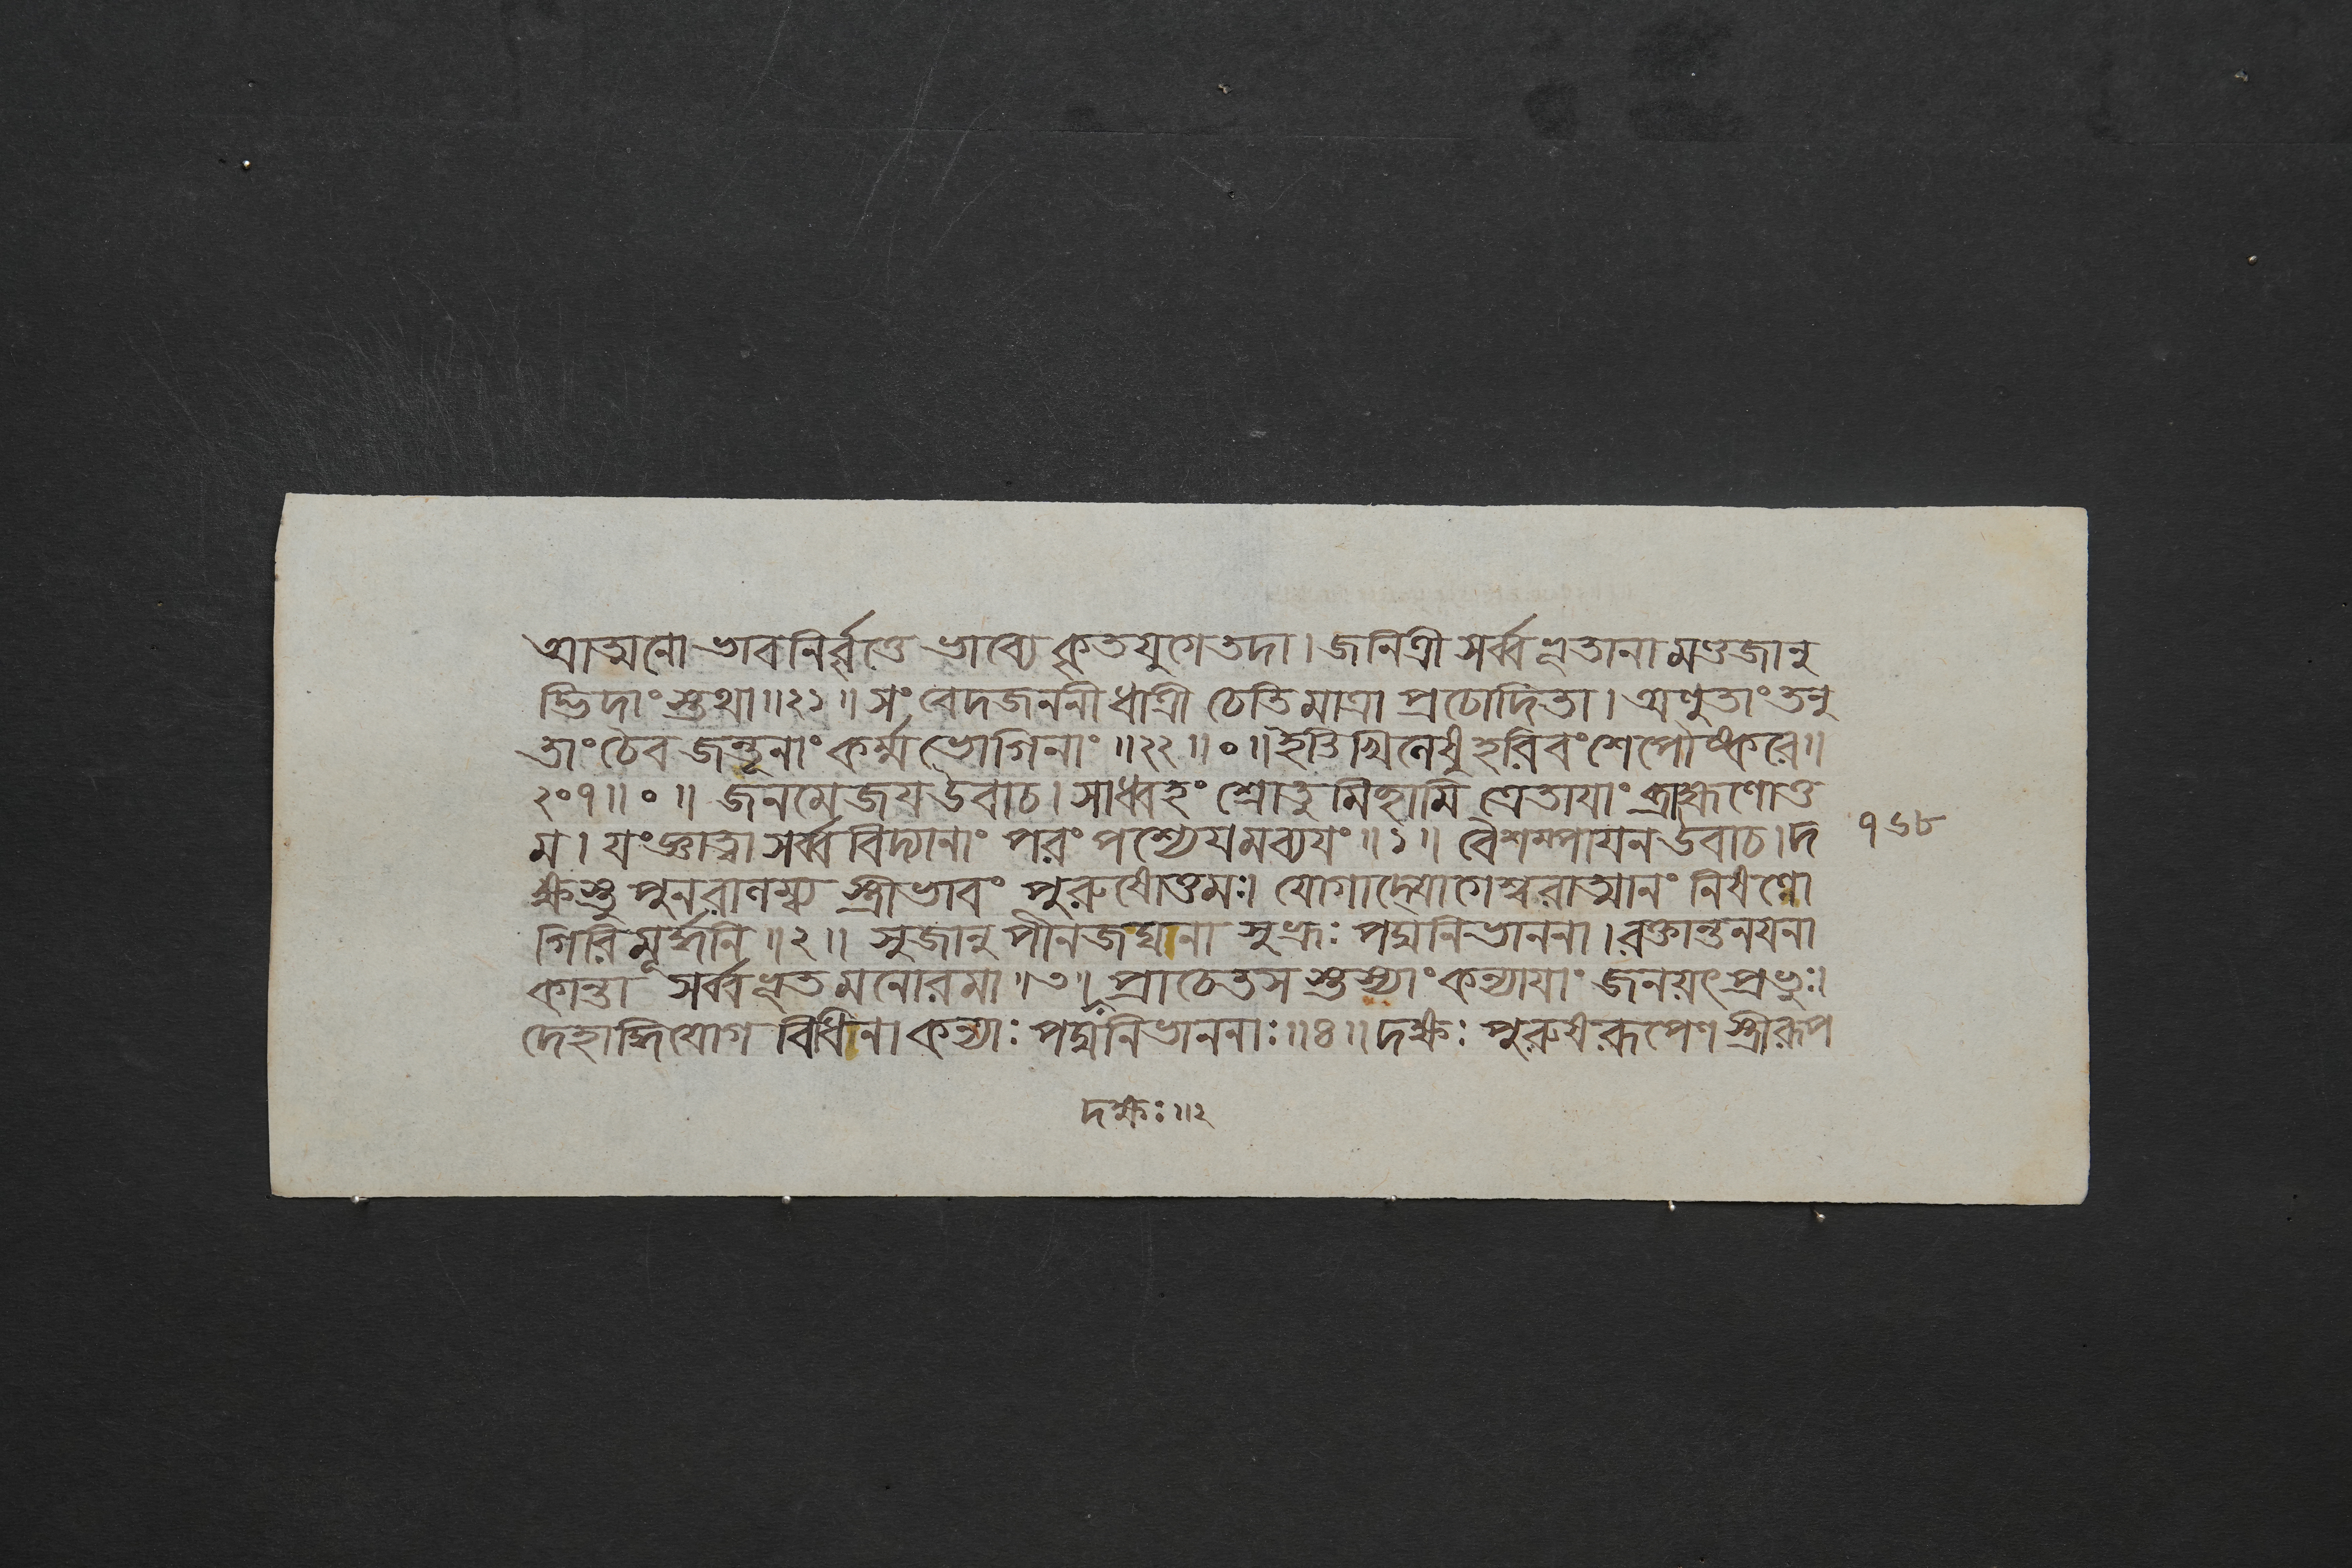 আত্মনো ভাবনির্বৃত্তে ভাব্যে কৃতযুগে তদা । জনিত্রী সর্ব্বভূতানামণ্ডজানু
দ্ভিদাংস্তথা ॥২১॥ সং বেদজননী ধাত্রী চেতি মাত্রা প্রচোদিতা । অণুতাং তনু
তাং চৈব জন্তূনাং কর্ম্মভোগিনাং ॥২২॥०॥ ইতি খিলেষু হরিবংশে পৌষ্করে ॥
২০৭॥०॥ জনমেজয় উবাচ । সাধ্বহং শ্রোতুমিচ্ছামি ত্রেতায়াং ব্রাহ্মণোত্ত
ম । যংজ্ঞাত্বা সর্ব্ববিদ্যানাং পরং পশ্যেয়মব্যয়ং ॥১॥ বৈশম্পায়ন উবাচ । দ
৭৬৮
ক্ষস্তু পুনরালম্ব্য স্ত্রীভাবং পুরুষোত্তমঃ। যোগাদ্যোগেশ্বরাত্মানং নিষণ্ণো
গিরিমূর্দ্ধনি ॥২॥ সুজানু পীনজঘনা সুভ্রূঃ পদ্মনিভাননা । রক্তান্তনয়না
কান্তা সর্ব্বভূতমনোরমা ॥৩॥ প্রাচেতসস্তুস্যাং কন্যায়াং জনয়ৎ প্রভুঃ।
দেহার্দ্ধিযোগ বিধিনা কন্যাঃ পদ্মনিভাননাঃ ॥৪॥ দক্ষঃ পুরুষরূপেণ স্ত্রীরূপ
দক্ষঃ॥২